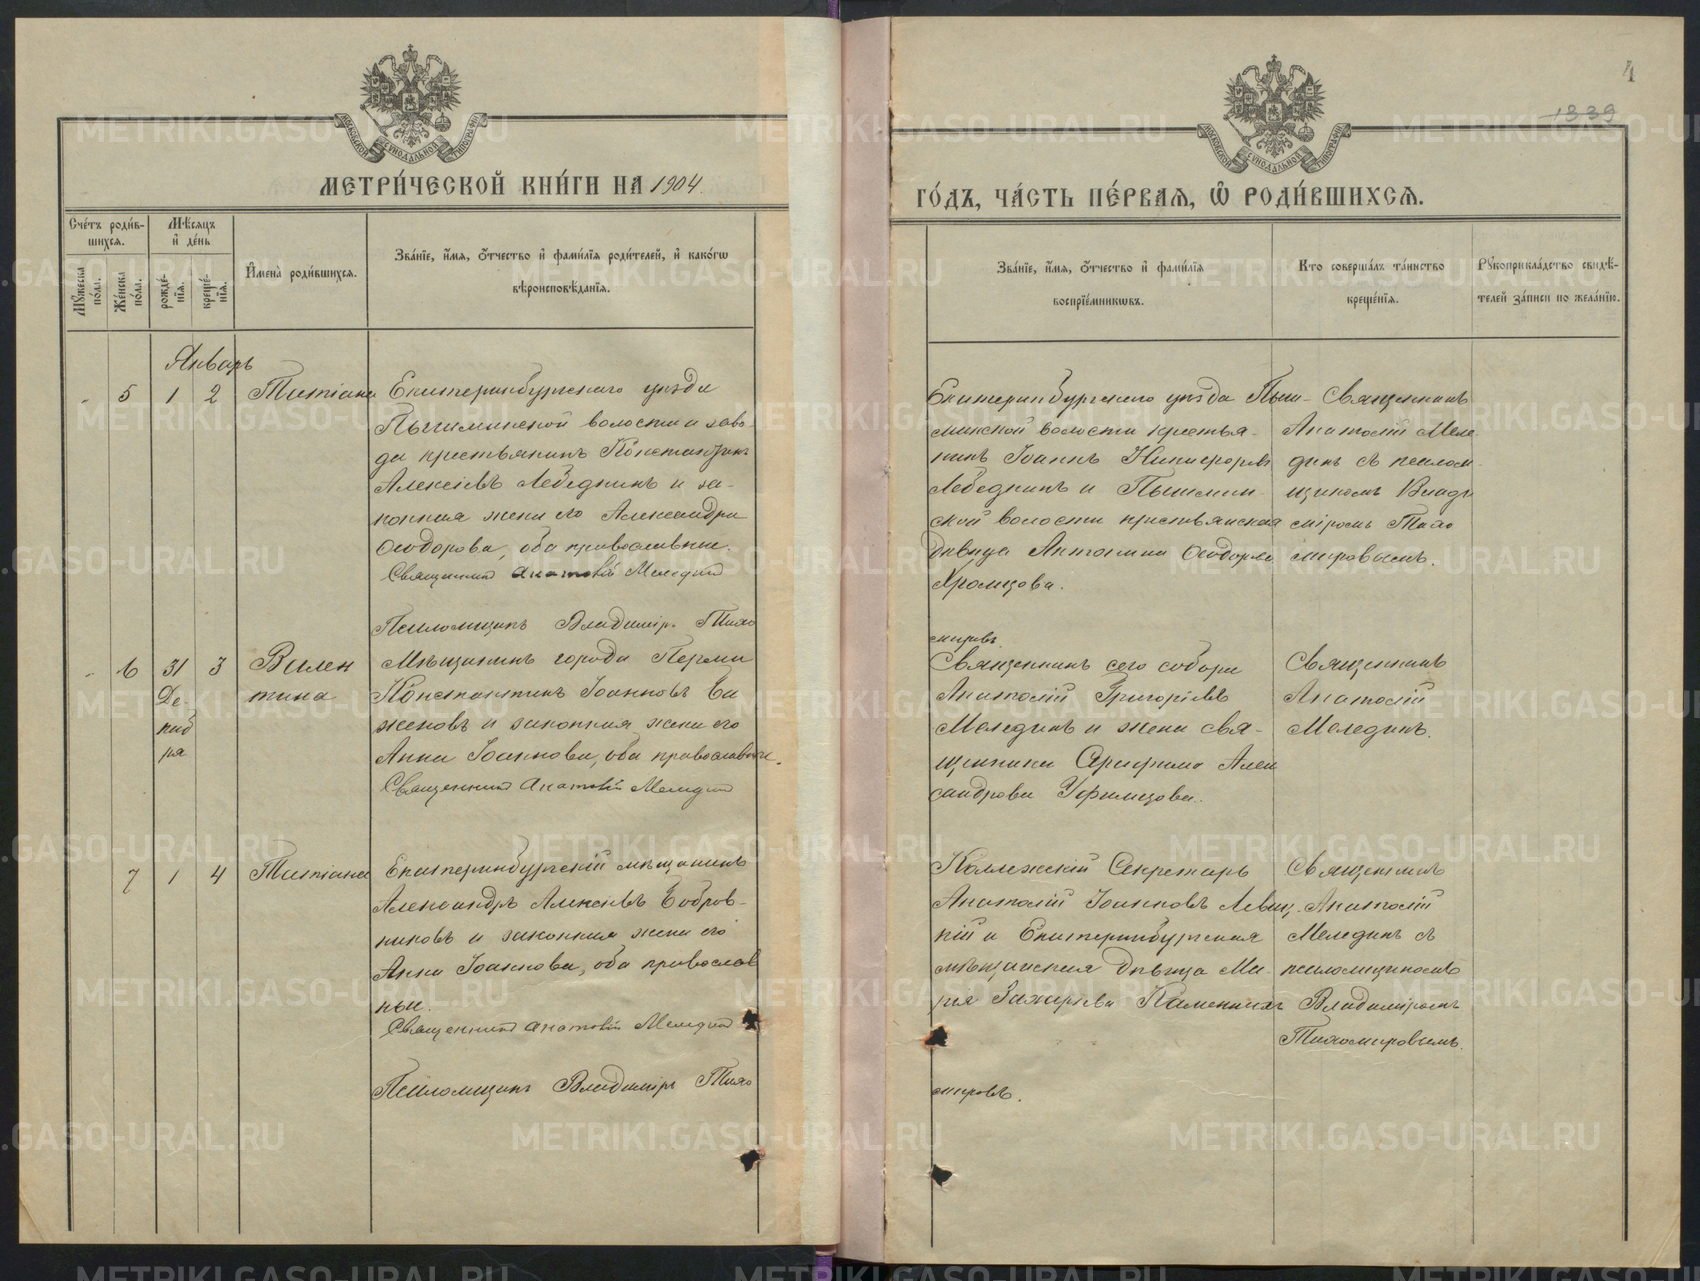 4
1339
МОСКОВСКОЙ СѴНОДАЛЬНОЙ ТИПОГРАФІИ
МОСКОВСКОЙ СѴНОДАЛЬНОЙ ТИПОГРАФІИ
МЕТРИ́ЧЕСКОЙ КНИ́ГИ НА 1904.
ГО́ДЪ, ЧА́СТЬ ПЕ́РВАѦ, Ѽ РОДИ́ВШИХСѦ.
Сче́тъ роди́в-
шихсѧ.
Мꙋ́жеска по́лꙋ.
Же́нска по́лꙋ.
Мѣ́сѧцъ
и҆ де́нь
рожде́-
нїѧ.
креще́-
нїѧ.
И҆мена̀ роди́вшихсѧ.
Зва́нїе, и҆́мѧ, ѻ҆́тчество и҆ фами́лїѧ роди́телей, и҆ како́гѡ
вѣроисповѣ́данїѧ.
Зва́нїе, и҆́мѧ, ѻ҆́тчество и҆ фами́лїѧ
воспрїе́мникѡвъ.
Кто соверша́лъ та́инство
креще́нїѧ.
Рꙋкоприкла́дство свидѣ́-
телей за́писи по жела́нїю.
Январь
- 5 1 2 Татіана
Екатеринбургскаго уѣзда
Пышминской волости и заво-
да крестьянинъ Константинъ
Алексіевъ Лебедкинъ и за-
конная жена его Александра
Ѳеодорова, оба православные.
Священникъ Анатолій Меледин
Псаломщикъ Владиміръ Тихо
мировъ
Екатеринбургскаго уѣзда Пыш-
минской волости крестья-
нинъ Іоаннъ Никифоровъ
Лебедкинъ и Пышмин-
ской волости крестьянская
дѣвица Антонина Ѳеодорова
Хромцова.
Священникъ
Анатолій Меле
динъ съ псалом-
щикомъ Влади
міромъ Тихо
мировымъ.
- 6 31 3 Вален
Де-
каб
ря
тина
Мѣщанинъ города Перми
Константинъ Іоанновъ Ба
женовъ и законная жена его
Анна Іоаннова, оба православные.
Священникъ Анатолій Меледин
Священникъ сего собора
Анатолій Григоріевъ
Мелединъ и жена свя-
щенника Серафима Алек
сандрова Уфимцова.
Священникъ
Анатолій
Мелединъ.
7 1 4 Татіана
Екатеринбургскій мѣщанинъ
Александръ Алексіевъ Бобров-
никовъ и законная жена его
Анна Іоаннова, оба православ
ные.
Священникъ Анатолій Меледин
Псаломщикъ Владиміръ Тихо
мировъ.
Коллежскій Секретарь
Анатолій Іоанновъ Левиц-
кій и Екатеринбургская
мѣщанская дѣвица Ма-
рія Захаріева Каменских
Священникъ
Анатолій
Мелединъ съ
псаломщикомъ
Владиміромъ
Тихомировымъ.
METRIKI.GASO-URAL.RU